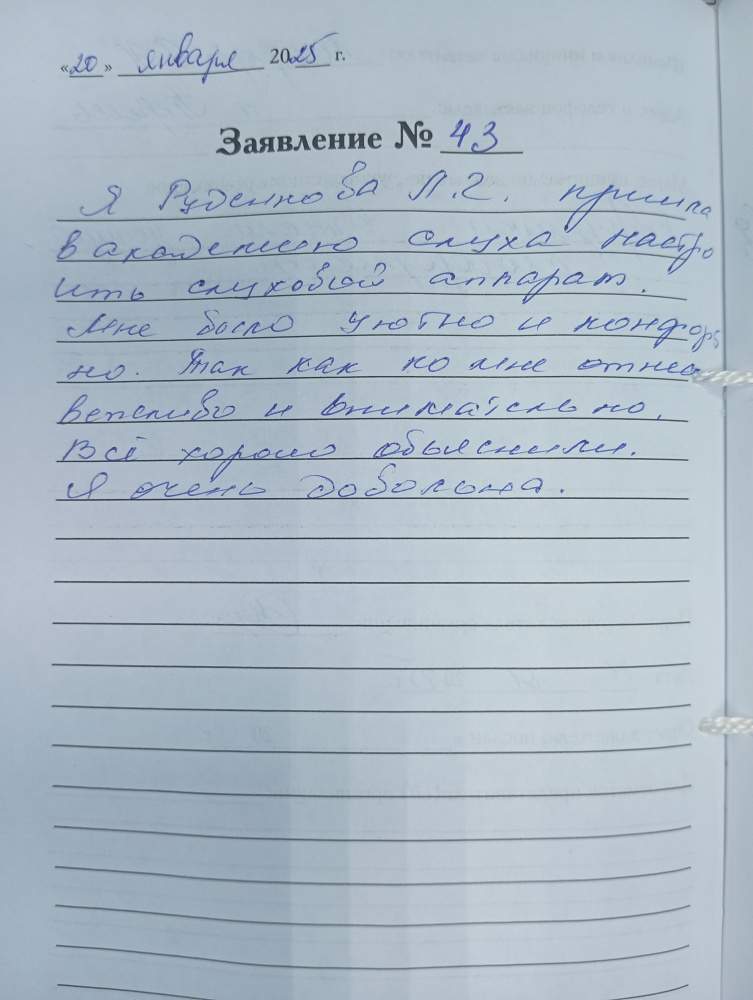 «20» января 2025 г.
Заявление № 43
Я Руденкова Л.Г. пришла
в академию слуха настро
ить слуховой аппарат.
Мне было уютно и конфор
но. Так как ко мне отнес
вежливо и внимательно.
Всё хорошо обьяснили.
Я очень довольна.